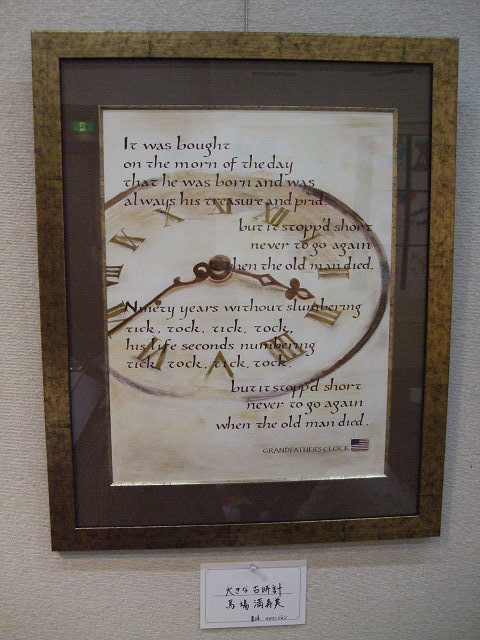 It was bought
on the morn of the day
that he was born and was
always his treasure and prid
but it stopp'd short
never to go again
hen the old man died.
Ninety years without slumbering
tick, tock, tick, tock,
his life seconds numbering
tick, tock, tick, tock,
but it stopp'd short
never to go again
when the old man died.
GRANDFATHER'S CLOCK
大きな古時計
馬場 満寿美